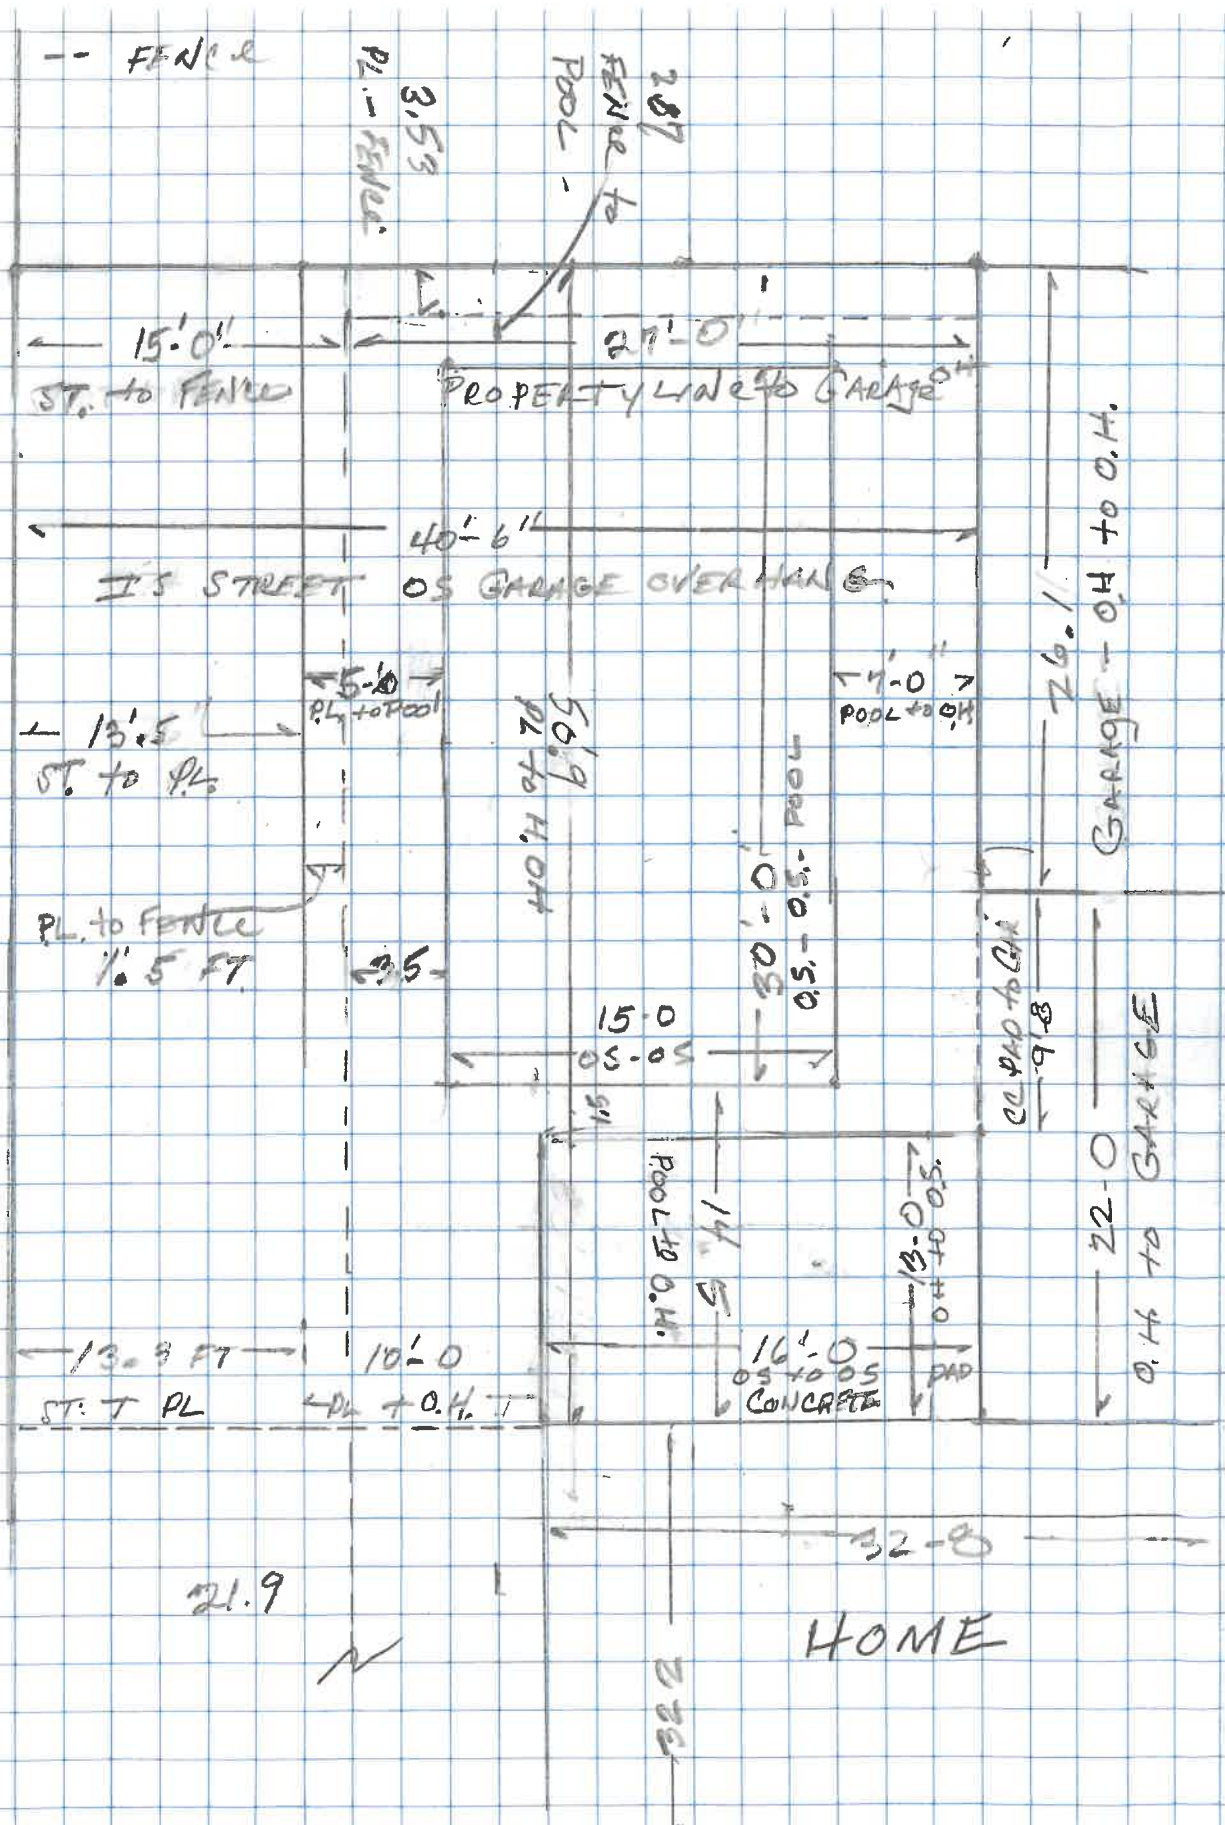 -- FENCE
3.53
PL.- FENCE
287
FENCE to
POOL -
15'-0"
ST. to FENCE
27'-0"
PROPERTY LINE to GARAGE OH
40'-6"
IS STREET OS GARAGE OVERHANG
5'-0
P.L. to POOL
7'-0"
POOL to OH
13'.5"
ST. to PL.
50'.9
PL to H.OH
26.1
GARAGE - OH to O.H.
30'-0"
O.S. - O.S.- POOL
PL. to FENCE
1'.5 FT.
3.5
15-0
OS-OS
CC PAD to GAR
9'-8
22-0
O.H. to GARAGE
1.5"
POOL TO O.H.
14'.5
13-0
OH TO O.S.
PAD
16'-0
OS to OS
CONCRETE
13.3 FT
ST. T PL
10'-0
PL to O.H.
32-8
21.9
HOME
32 2